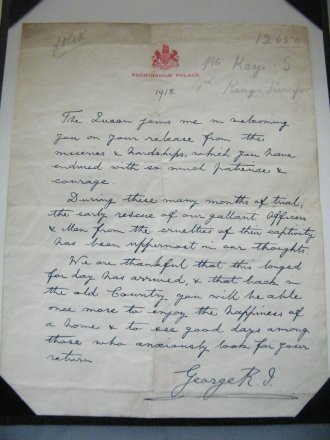 1265
BUCKINGHAM PALACE
Kays. S
1918
The Queen joins me in welcoming
you on your release from the
miseries & hardships, which you have
endured with so much patience &
courage.
During these many months of trial,
the early rescue of our gallant Officers
& Men from the cruelties of their captivity
has been uppermost in our thoughts.
We are thankful that this longed
for day has arrived, & that back in
the old Country you will be able
once more to enjoy the happiness of
a home & to see good days among
those who anxiously look for your
return.
George R.I.